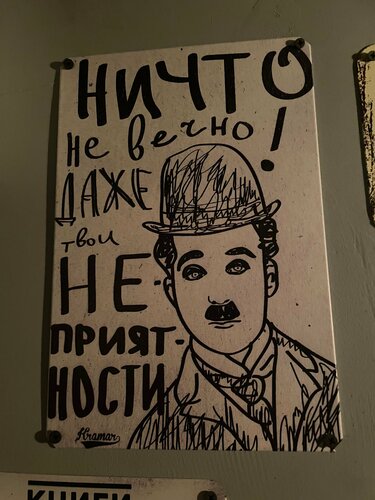 НИЧТО
не вечно!
ДАЖЕ
твои
НЕ-
ПРИЯТ-
НОСТИ
Kramar
КНИГИ